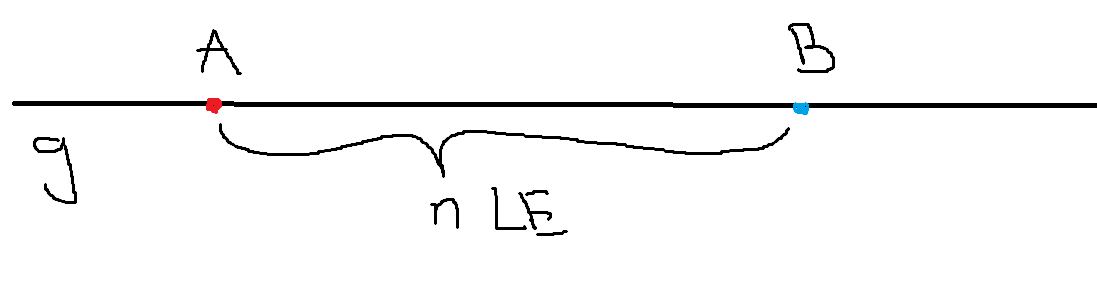 A B
g
n LE